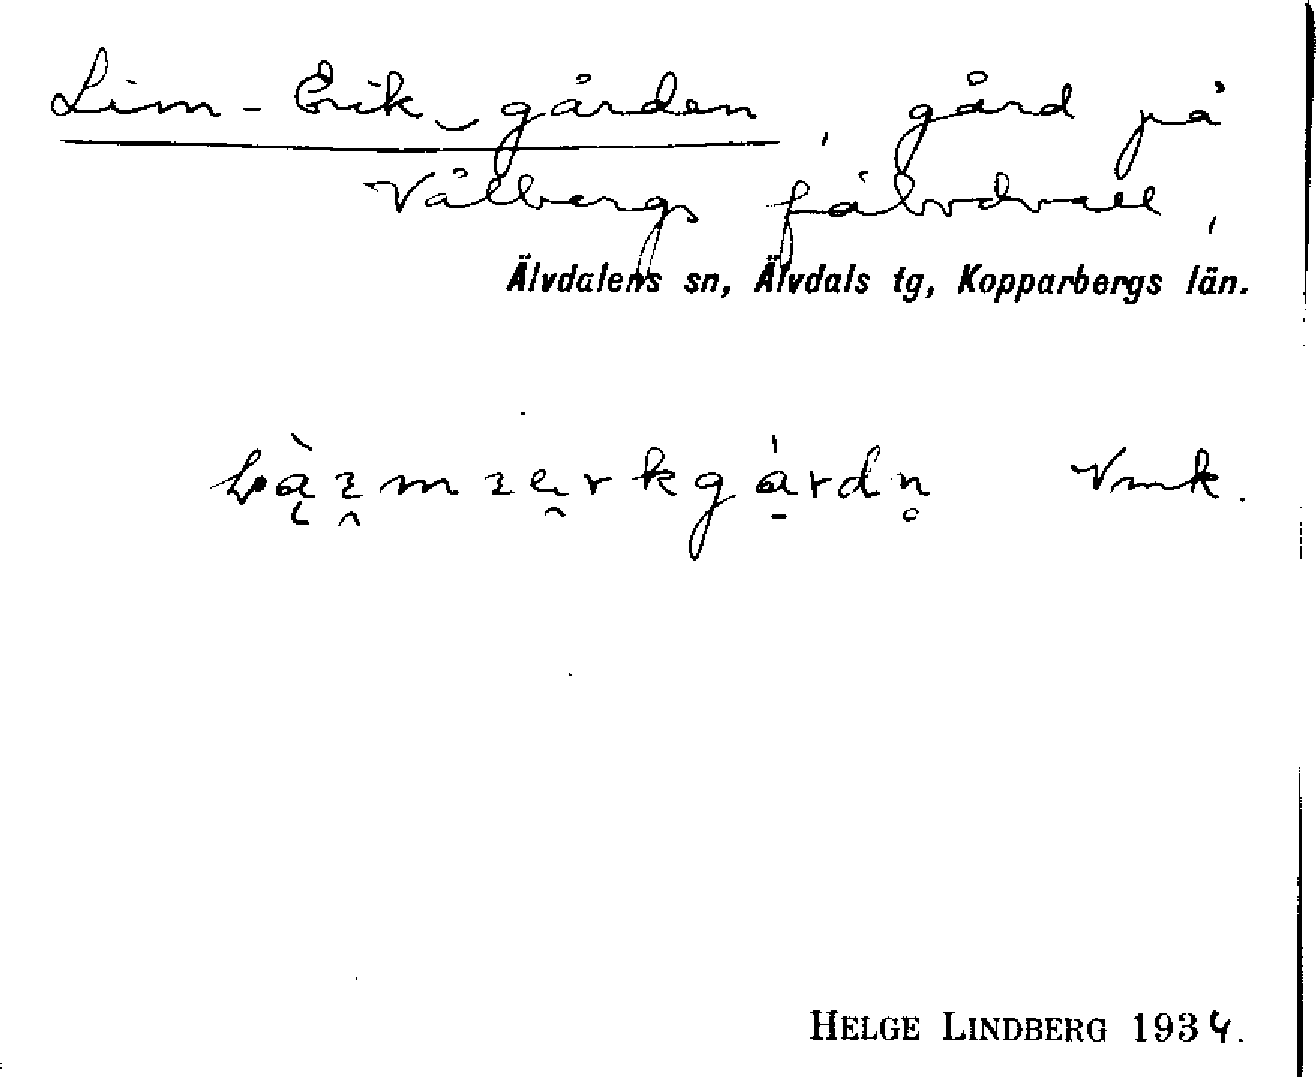 Lim-Erik-gården, gård på
Vålbergs fäbodvall,
Älvdalens sn, Älvdals tg, Kopparbergs län.
Vmk.
HELGE LINDBERG 1934.